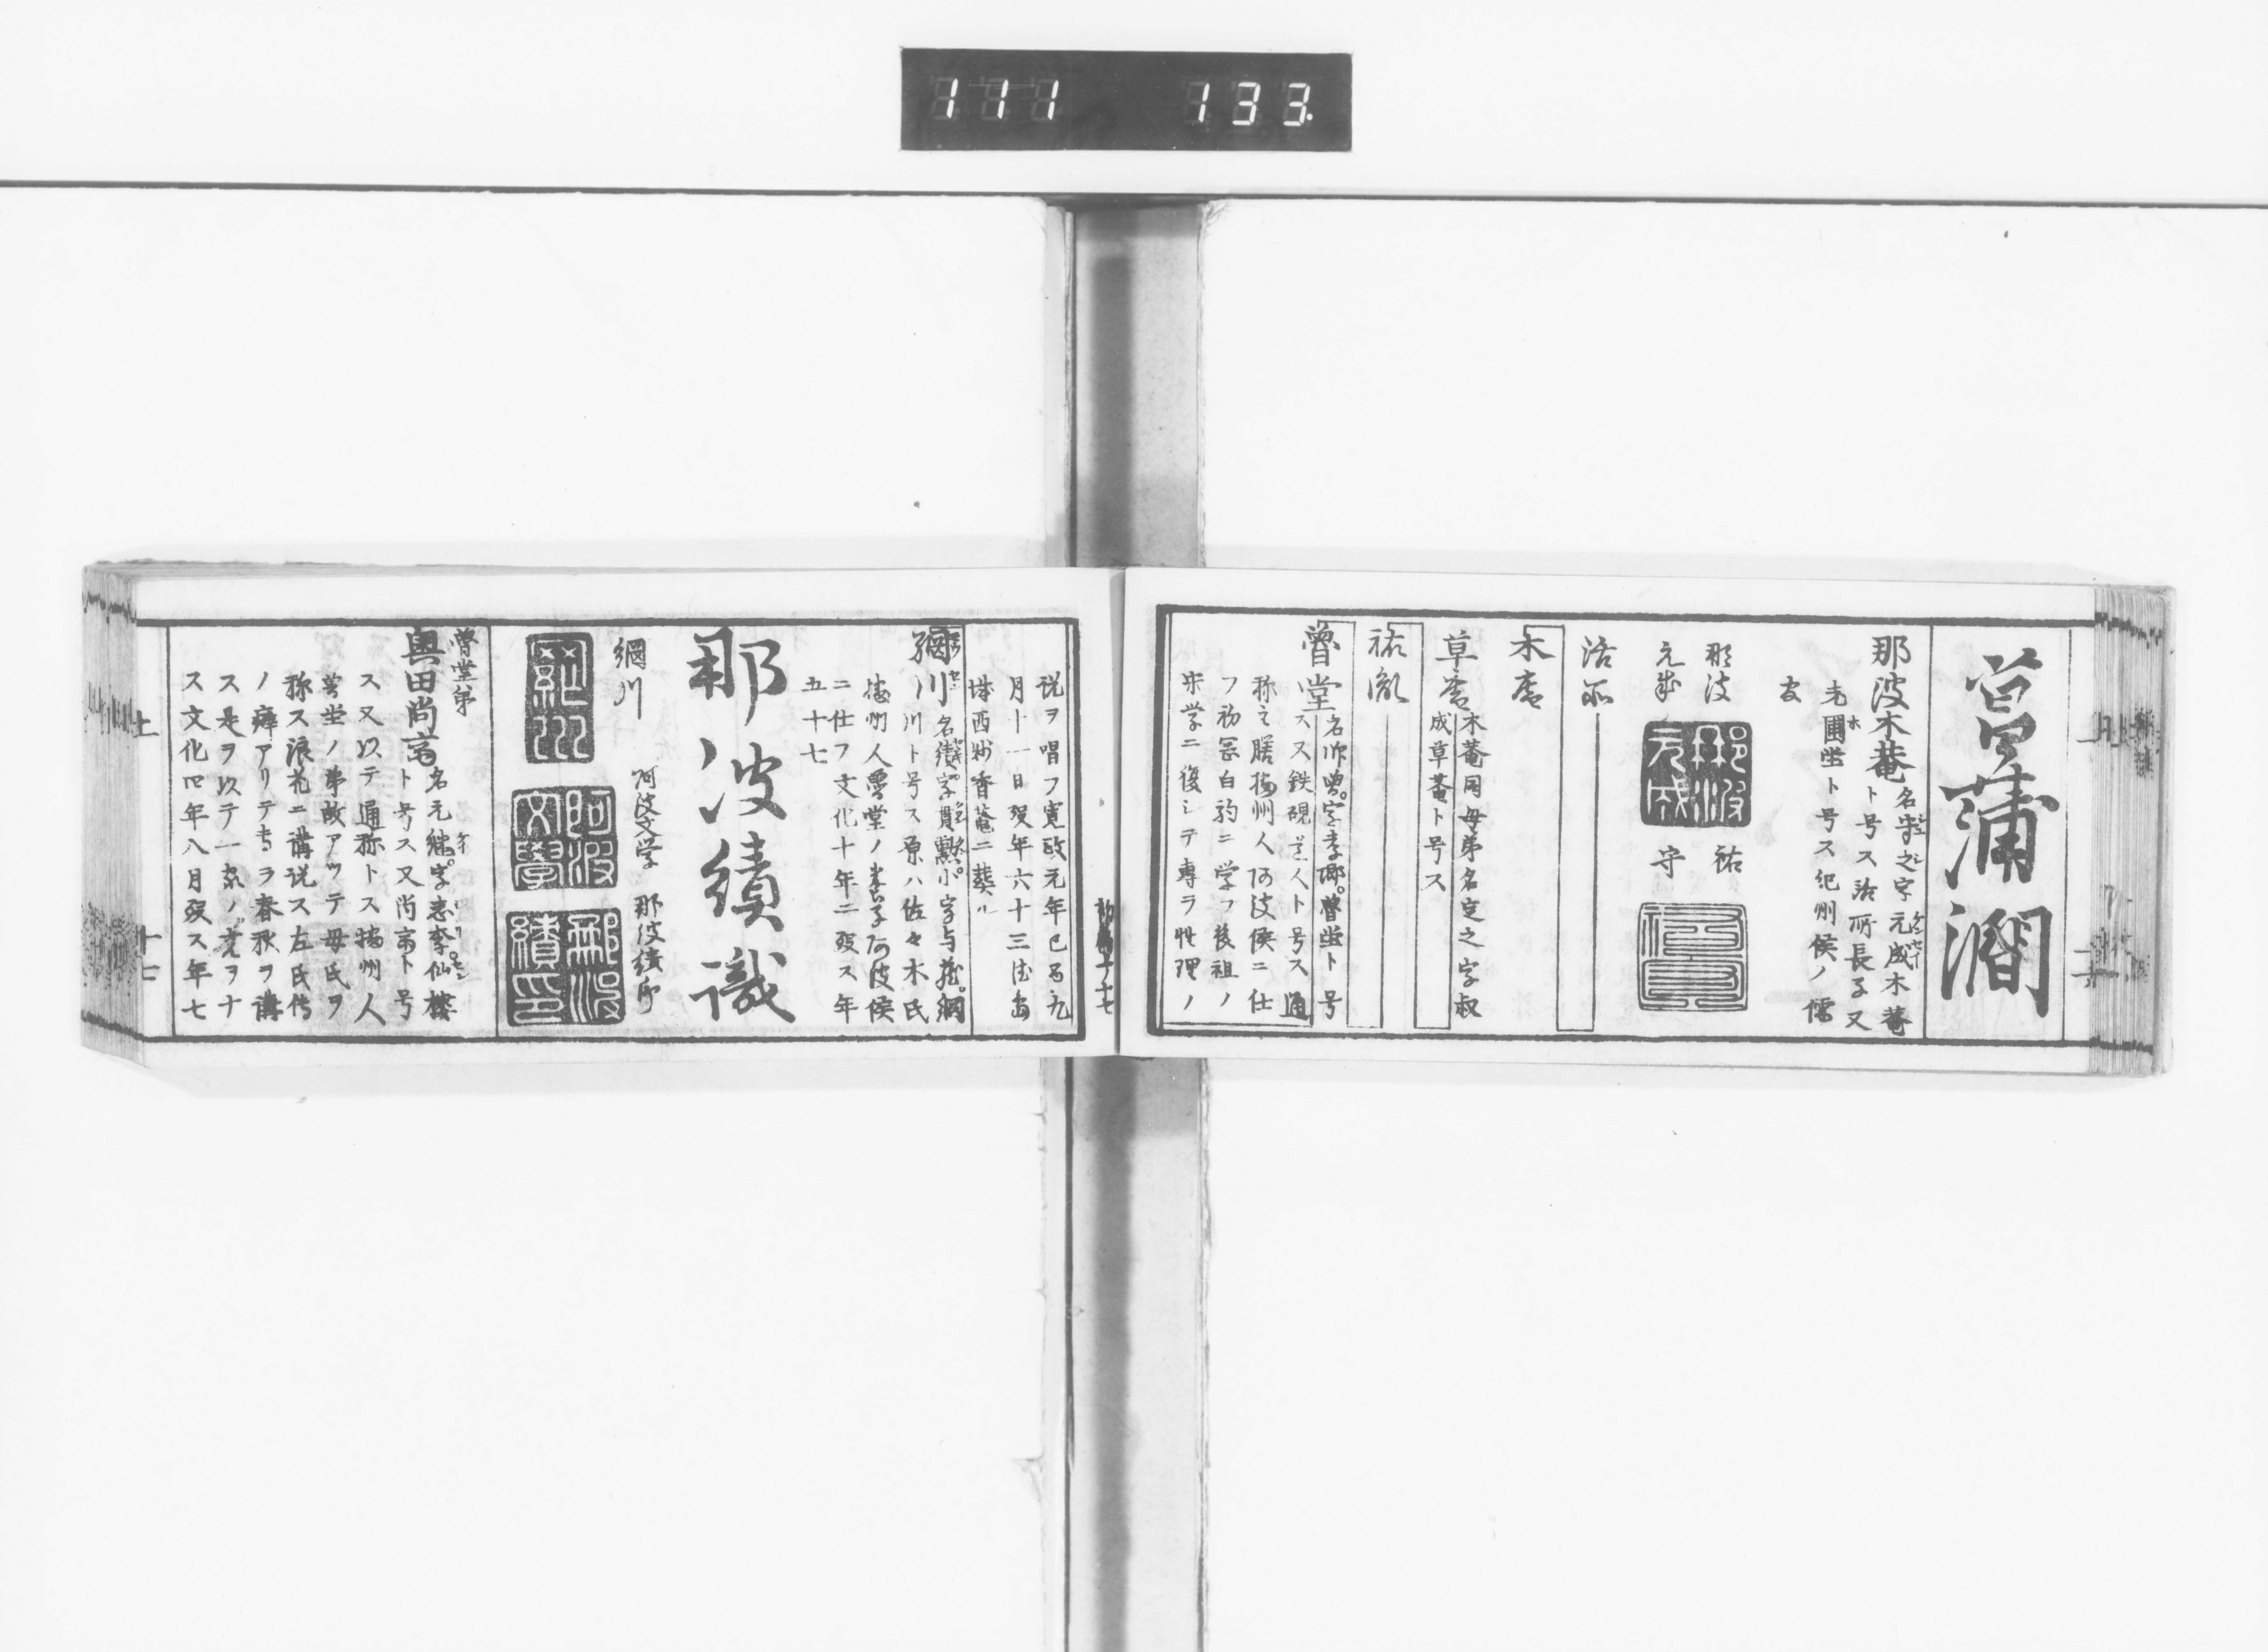 111 133.
菖蒲澗
那波木菴名守之字元成木菴
ト号ス活所長子又
老圃堂ト号ス紀州侯ノ儒
官
那波
元成
祐
守
活所
木菴
草菴木菴同母弟名定之字叔
成草菴ト号ス
祐胤
魯堂名師曾字孝卿魯堂ト号
ス又鉄硯道人ト号ス通
称主膳播州人阿波侯ニ仕
フ初岡白駒ニ学フ後祖ノ
宋学ニ復シテ専ラ性理ノ
説ヲ唱フ寛政元年己酉九
月十一日歿年六十三法号
網川
川ト号ス原ハ佐々木氏
播州人魯堂ノ養子阿波侯
ニ仕フ文化十年ニ歿ス年
五十七
那波績識
網川
阿波文学
那波績印
紀川
阿波文學
那波績印
魯堂弟
奥田尚斎名元継字志季仙楼
ト号ス又尚斎ト号
ス又以テ通称トス播州人
魯堂ノ弟故アツテ母氏ヲ
称ス浪花ニ講説ス左氏伝
ノ癖アリテ専ラ春秋ヲ講
ス是ヲ以テ一家ノ学ヲナ
ス文化四年八月歿ス年七
上
十七